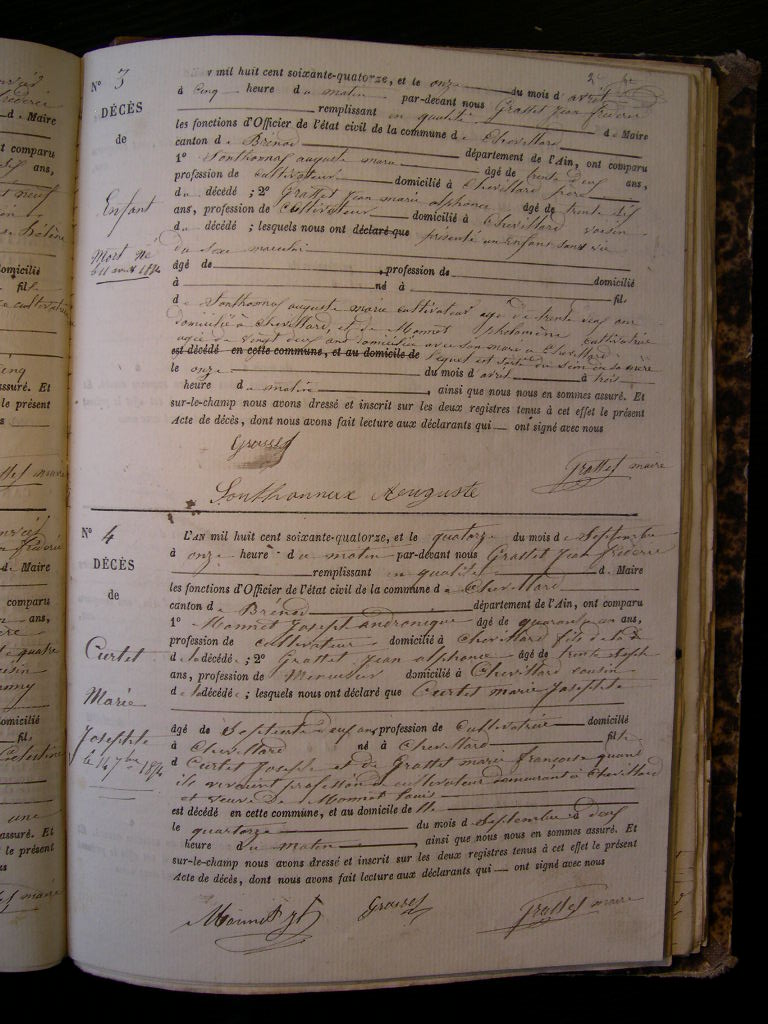 N° 3
DÉCÈS
de
Enfant
Mort né
le 11 avril 1874
mil huit cent soixante-quatorze, et le onze du mois d'avril
à cinq heure du matin par-devant nous Grattet Jean fréderic
remplissant en qualité d Maire
les fonctions d'Officier de l'état civil de la commune de Chevillard
canton de Brénod département de l'Ain, ont comparu
1° Sonthonnax auguste marie âgé de trente deux ans,
profession de cultivateur domicilié à Chevillard père
du décédé ; 2° Grattet Jean marie alphonce âgé de trente six
ans, profession de Cultivateur domicilié à Chevillard voisin
du décédé ; lesquels nous ont déclaré que présenté un enfant sans vie
du sexe masculin
âgé de , profession de
à né à domicilié
fil
de Sonthonnax auguste marie cultivateur agé de trente deux ans
domicilié à Chevillard, et de Monnet philomène cultivatrice
agée de vingt deux ans domiciliée avec son mari à Chevillard
est décédé en cette commune, et au domicile de lequel est sorti du sein de sa mère
le onze du mois d'avril à trois
heure du matin , ainsi que nous nous en sommes assuré. Et
sur-le-champ nous avons dressé et inscrit sur les deux registres tenus à cet effet le présent
Acte de décès, dont nous avons fait lecture aux déclarants qui ont signé avec nous
Grattet maire
Sonthonnax Auguste
N° 4
DÉCÈS
de
Curtet
Marie
Josephte
le 14 7bre 1874
L'AN mil huit cent soixante-quatorze, et le quatorze du mois de Septembre
à onze heure du matin par-devant nous Grattet Jean fréderic
remplissant en qualité d Maire
les fonctions d'Officier de l'état civil de la commune de Chevillard
canton de Brénod département de l'Ain, ont comparu
1° Monnet Joseph andronique âgé de quarante un ans,
profession de cultivateur domicilié à Chevillard fils de la
d la décédée ; 2° Grattet Jean alphonce âgé de trente sept
ans, profession de Menuisier domicilié à Chevillard cousin
d ladécédée ; lesquels nous ont déclaré que Curtet marie Josephte
âgé de Septente deux ans profession de Cultivatrice domicilié
à Chevillard né à Chevillard fil
d Curtet Joseph et de Grattet marie françoise quand
ils vivaient profession de cultivateur demeurant à Chevillard
et veuve de Monnet Louis
est décédé en cette commune, et au domicile de
le quatorze du mois d septembre à deux
heure du matin , ainsi que nous nous en sommes assuré. Et
sur-le-champ nous avons dressé et inscrit sur les deux registres tenus à cet effet le présent
Acte de décès, dont nous avons fait lecture aux déclarants qui ont signé avec nous
Grattet maire